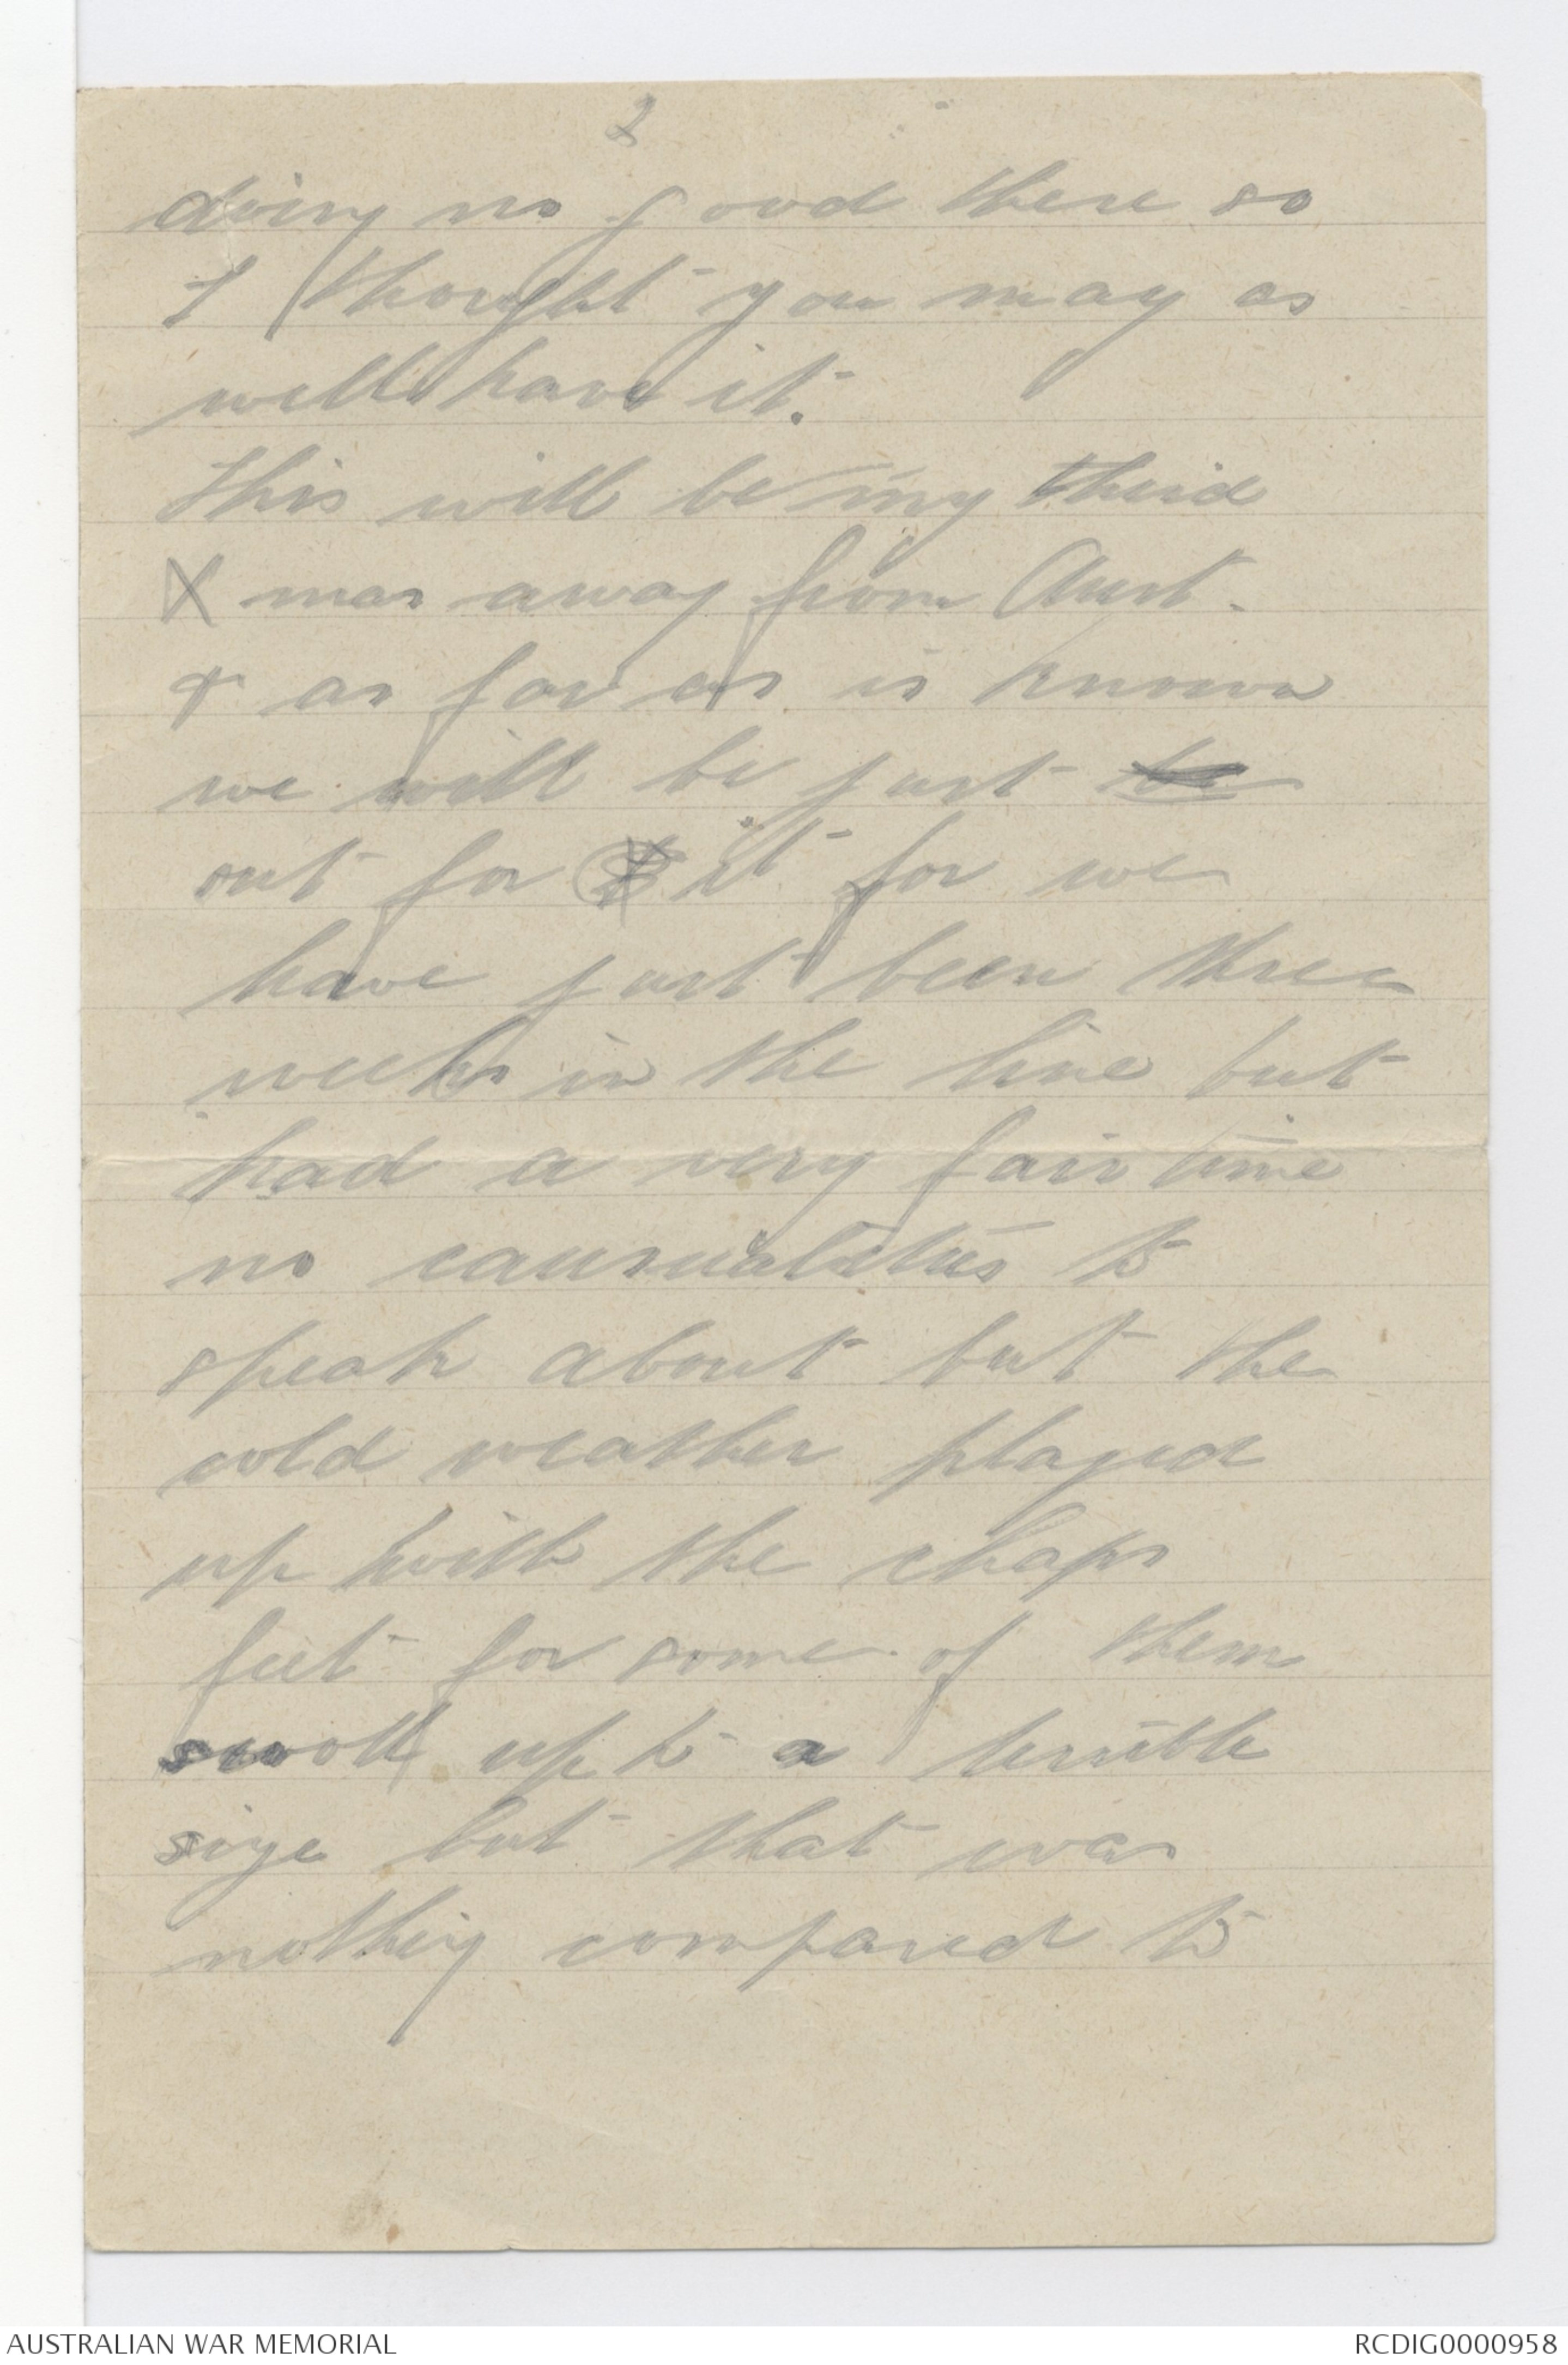 2
doing no good there so
I thought you may as
well have it.
This will be my third
Xmas away from Aust.
& as far as is known
we will be just
out for it for we
have just been three
weeks in the line but
had a very fair time
no causualities to
speak about but the
cold weather played
up with the chaps
feet for some of them
swoll up to a terrible
size but that was
nothing compared to
AUSTRALIAN WAR MEMORIAL
RCDIG0000958